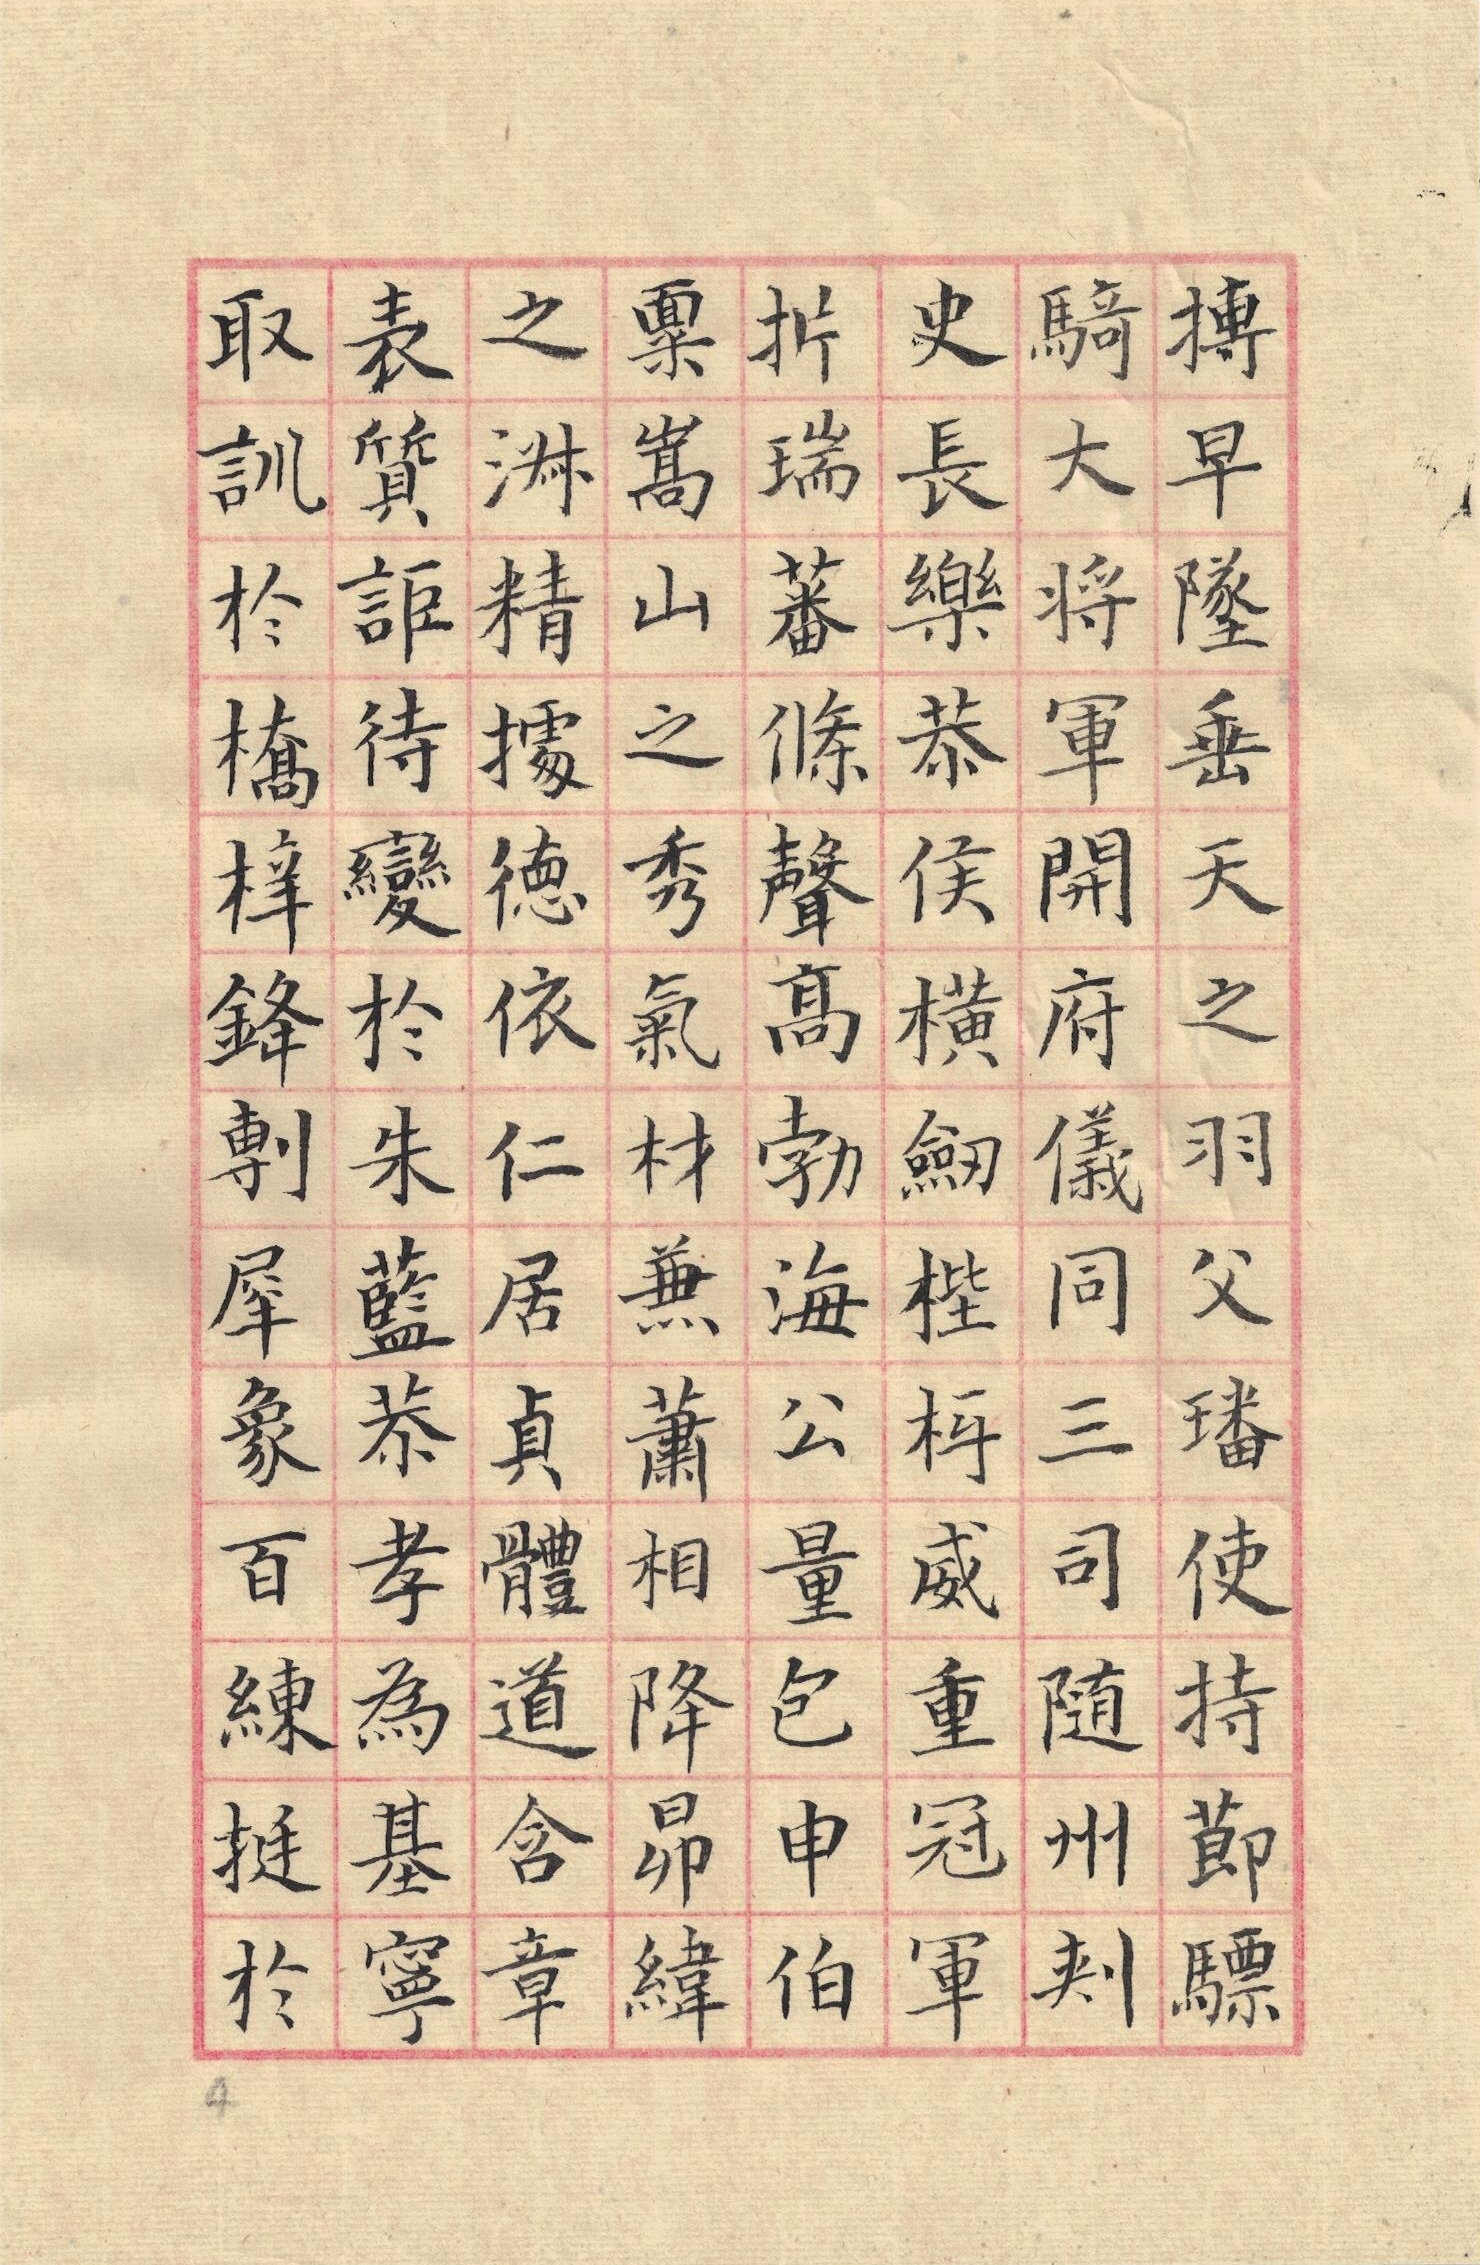 摶早墜垂天之羽父璠使持節驃
騎大將軍開府儀同三司随州刾
史長樂恭侯橫劒梐枑威重冠軍
析瑞蕃條聲高勃海公量包申伯
稟嵩山之秀氣材兼蕭相降昴緯
之淋精據德依仁居貞體道含章
表質詎待變於朱藍恭孝為基寧
取訓於橋梓鋒剸犀象百練挺於
4